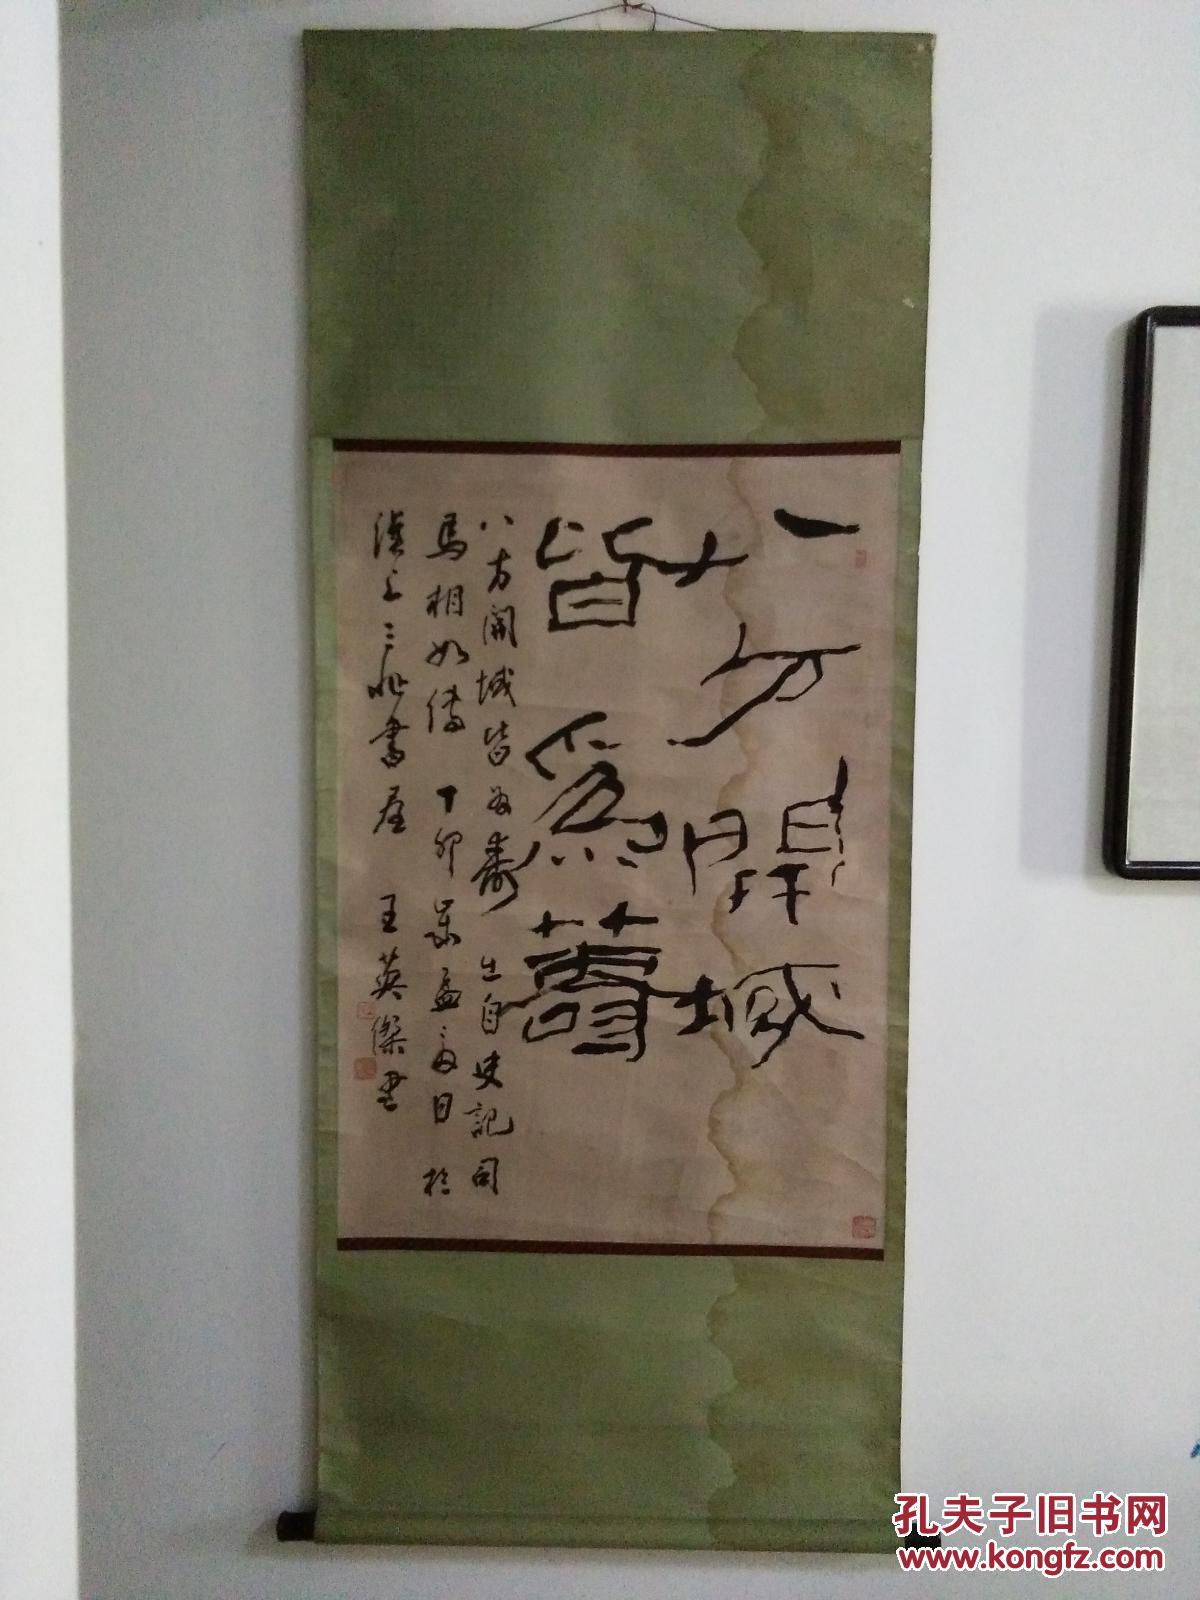 八方開域
皆為壽
八方開域皆為壽 出自史記司
馬相如傳 丁卯歲孟夏日 於
漢上三 書屋 王英傑書
孔夫子旧书网
www.kongfz.com